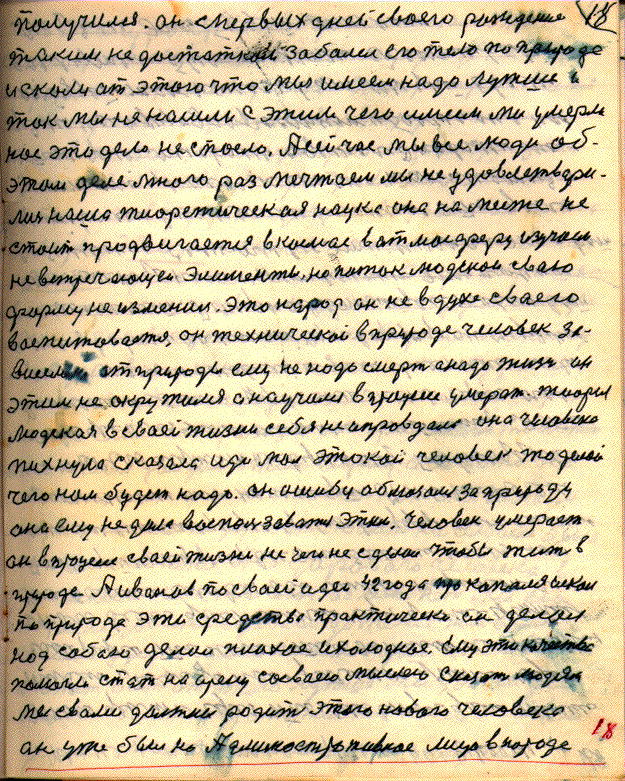 получился. он с первых дней своего рождения 18
таким недостатком забалел его тело по природе
искали от этого что мы имеем надо лутше и
так мы не нашли с этим чего имеем мы умерли
нас это дело не спасло. А сейчас мы все люди об-
этом деле много раз мечтаем мы не удовлетвари-
лись наша теоретическая наука она на месте не
стоит продвигается в космос в атмосферу изучает
не встречающеи элименты, но поток людской сваю
форму не изменил. Это народ он не в духе сваего
васпитовается, он технической в природе человек за-
висели от природы ему не надо смерт а надо жизн он
этим не окружился а научился в процесе умерат. теория
людская в своей жизни себя не аправдала она человека
пихнула сказала иди мол этокой человек то делай
чего нам будет надо. он ошибку обязал за природу
она ему не дала васползаватся этим. Человек умерает
он в процесе сваей жизни не чего не сделал чтобы жит в
природе А иванов по сваей идеи 42 года прокапался искал
по природе эти средства практически он делал
над сабою делал плахое и холодное. Ему эти качества
помагли стат на арену со сваею мыслею сказат людям
мы с вами должни родит этого нового человека
он уже был на Административное лицо в народе 18